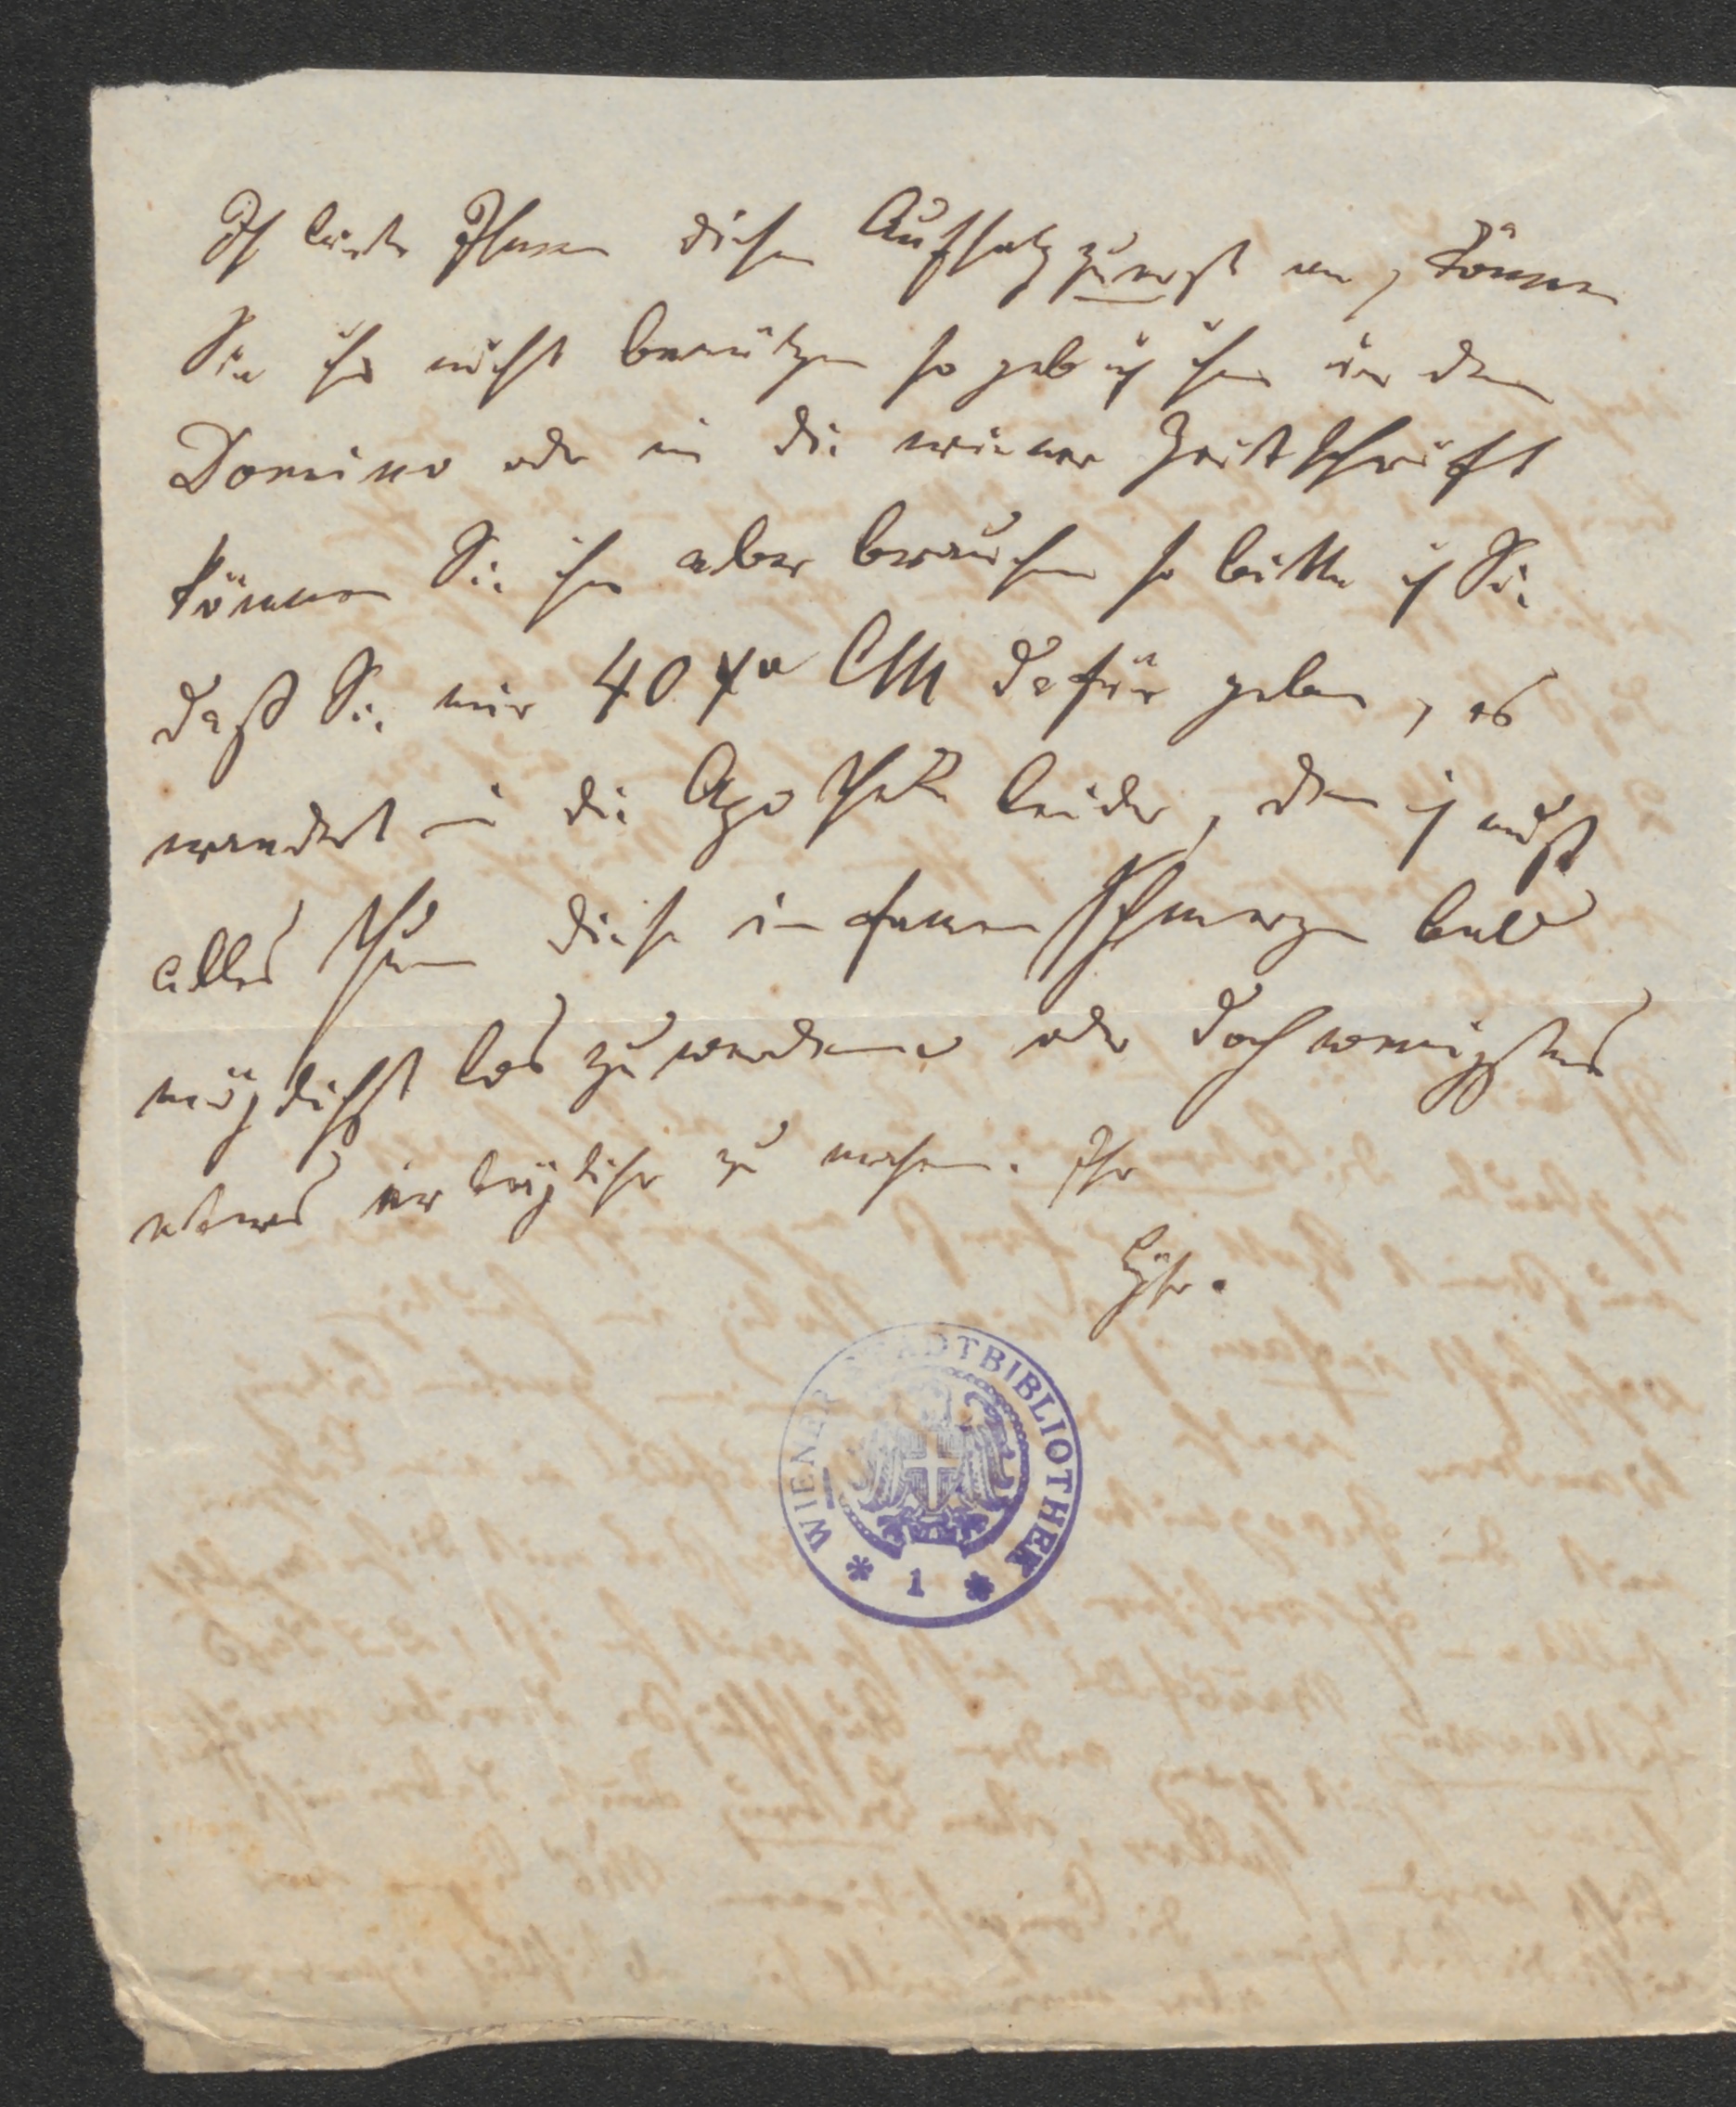 Ich biete Ihnen diesen Aufsatz zuerst an, können
Sie ihn nicht benützen so geb ich ihn in den
Domino oder in die wiener Zeitschrift
können Sie ihn aber brauchen so bitte ich Sie
daß Sie mir 40 fn CM dafür geben, es
wandert in die Apotheke leider, denn ich muß
alles thun diese infamen Schmerzen bald
möglichst los zu werden oder doch wenigstens
etwas erträglicher zu machen. Ihr
WIENER STADTBIBLIOTHEK
* 1 *